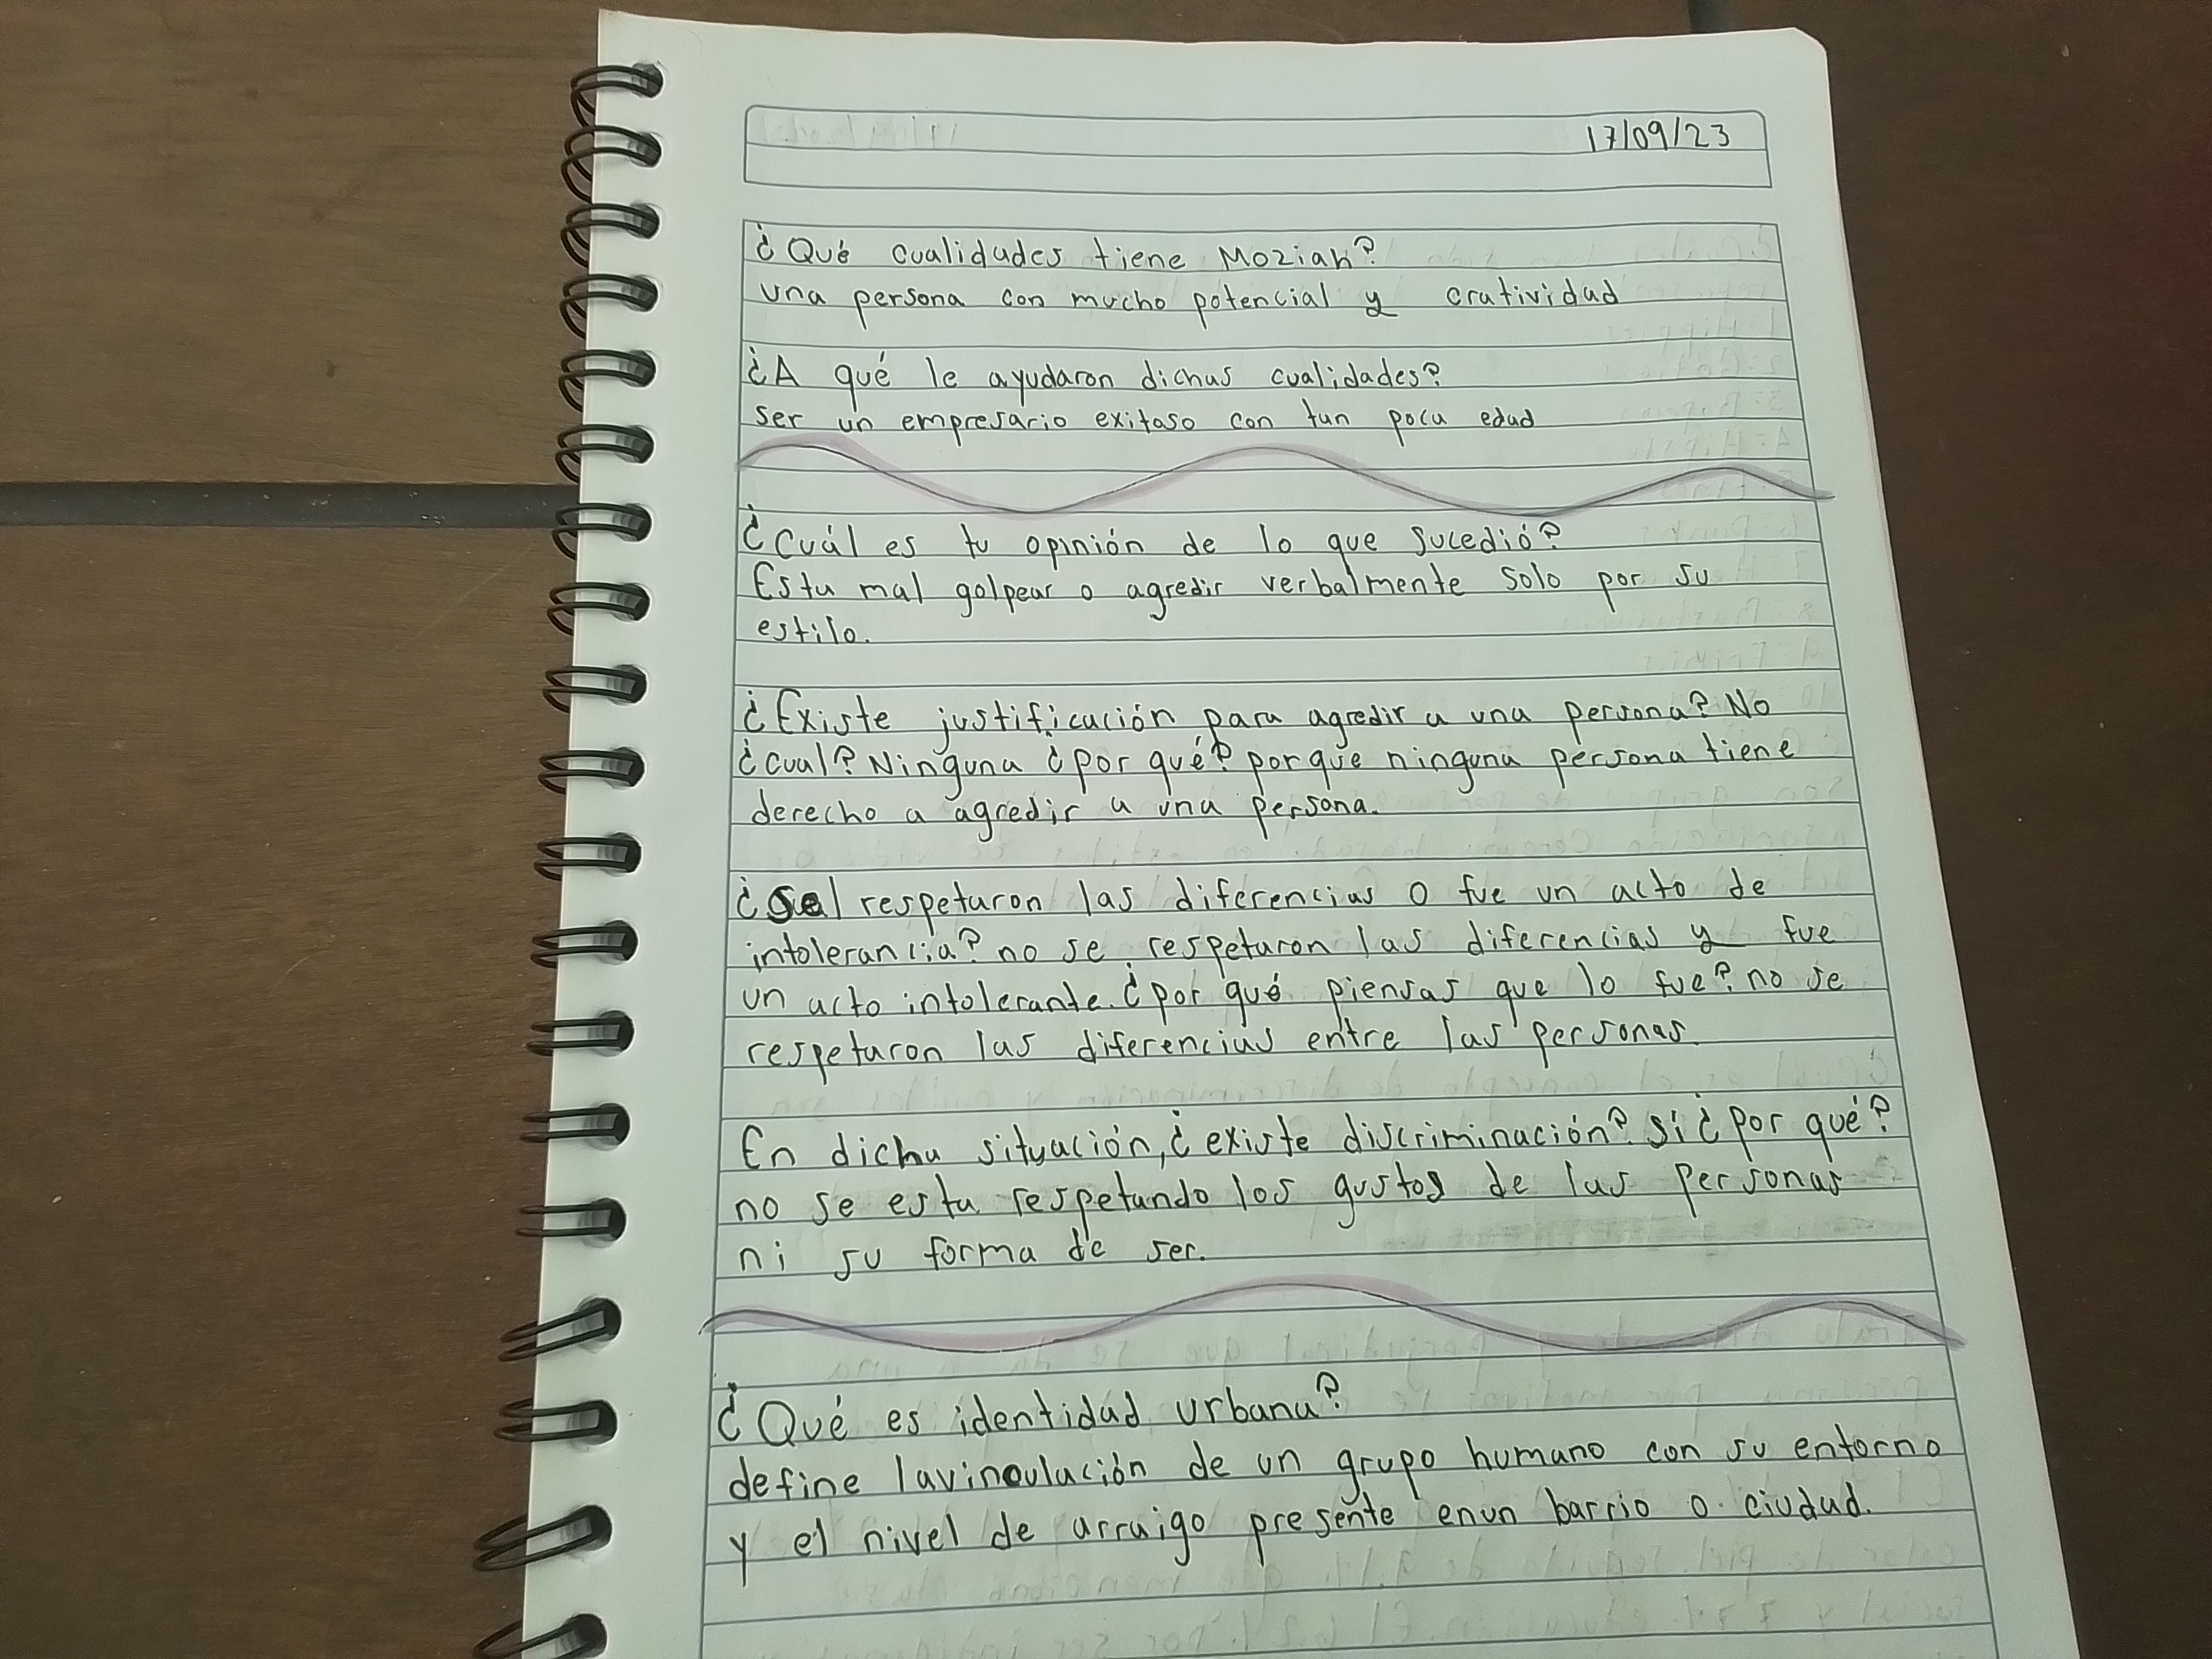 17/09/23
¿Qué cualidades tiene Moziah?
una persona con mucho potencial y cratividad
¿A qué le ayudaron dichas cualidades?
ser un empresario exitoso con tan poca edad
¿Cuál es tu opinión de lo que sucedió?
Esta mal golpear o agredir verbalmente solo por su
estilo.
¿Existe justificación para agredir a una persona? No
¿cual? Ninguna ¿por qué? porque ninguna persona tiene
derecho a agredir a una persona.
¿Se respetaron las diferencias o fue un acto de
intolerancia? no se respetaron las diferencias y fue
un acto intolerante. ¿por qué piensas que lo fue? no se
respetaron las diferencias entre las personas.
En dicha situación, ¿existe discriminación? si ¿por qué?
no se esta respetando los gustos de las personas
ni su forma de ser.
¿Qué es identidad urbana?
define lavinculación de un grupo humano con su entorno
y el nivel de arraigo presente enun barrio o ciudad.